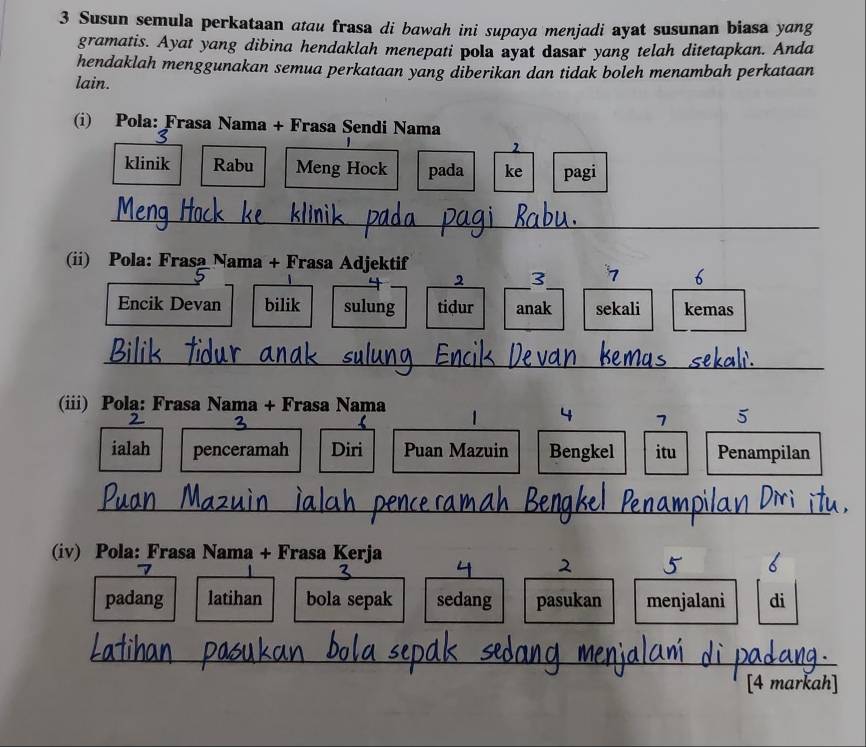 3 Susun semula perkataan atau frasa di bawah ini supaya menjadi ayat susunan biasa yang
gramatis. Ayat yang dibina hendaklah menepati pola ayat dasar yang telah ditetapkan. Anda
hendaklah menggunakan semua perkataan yang diberikan dan tidak boleh menambah perkataan
lain.
(i) Pola: Frasa Nama + Frasa Sendi Nama
3 1 2
klinik Rabu Meng Hock pada ke pagi
Meng Hock ke klinik pada pagi Rabu.
(ii) Pola: Frasa Nama + Frasa Adjektif
5 1 4 2 3 7 6
Encik Devan bilik sulung tidur anak sekali kemas
Bilik tidur anak sulung Encik Devan kemas sekali.
(iii) Pola: Frasa Nama + Frasa Nama
2 3 6 1 4 7 5
ialah penceramah Diri Puan Mazuin Bengkel itu Penampilan
Puan Mazuin ialah penceramah Bengkel Penampilan Diri itu.
(iv) Pola: Frasa Nama + Frasa Kerja
7 1 3 4 2 5 6
padang latihan bola sepak sedang pasukan menjalani di
Latihan pasukan bola sepak sedang menjalani di padang.
[4 markah]